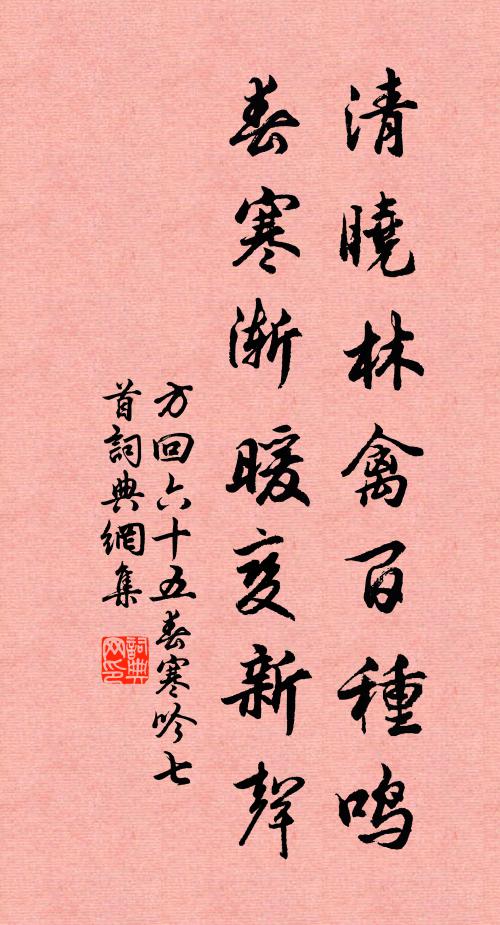 清曉林禽百種鸣
春寒渐暖变新聲
方回六十五春寒吟七
首詞典網集
詞典网印